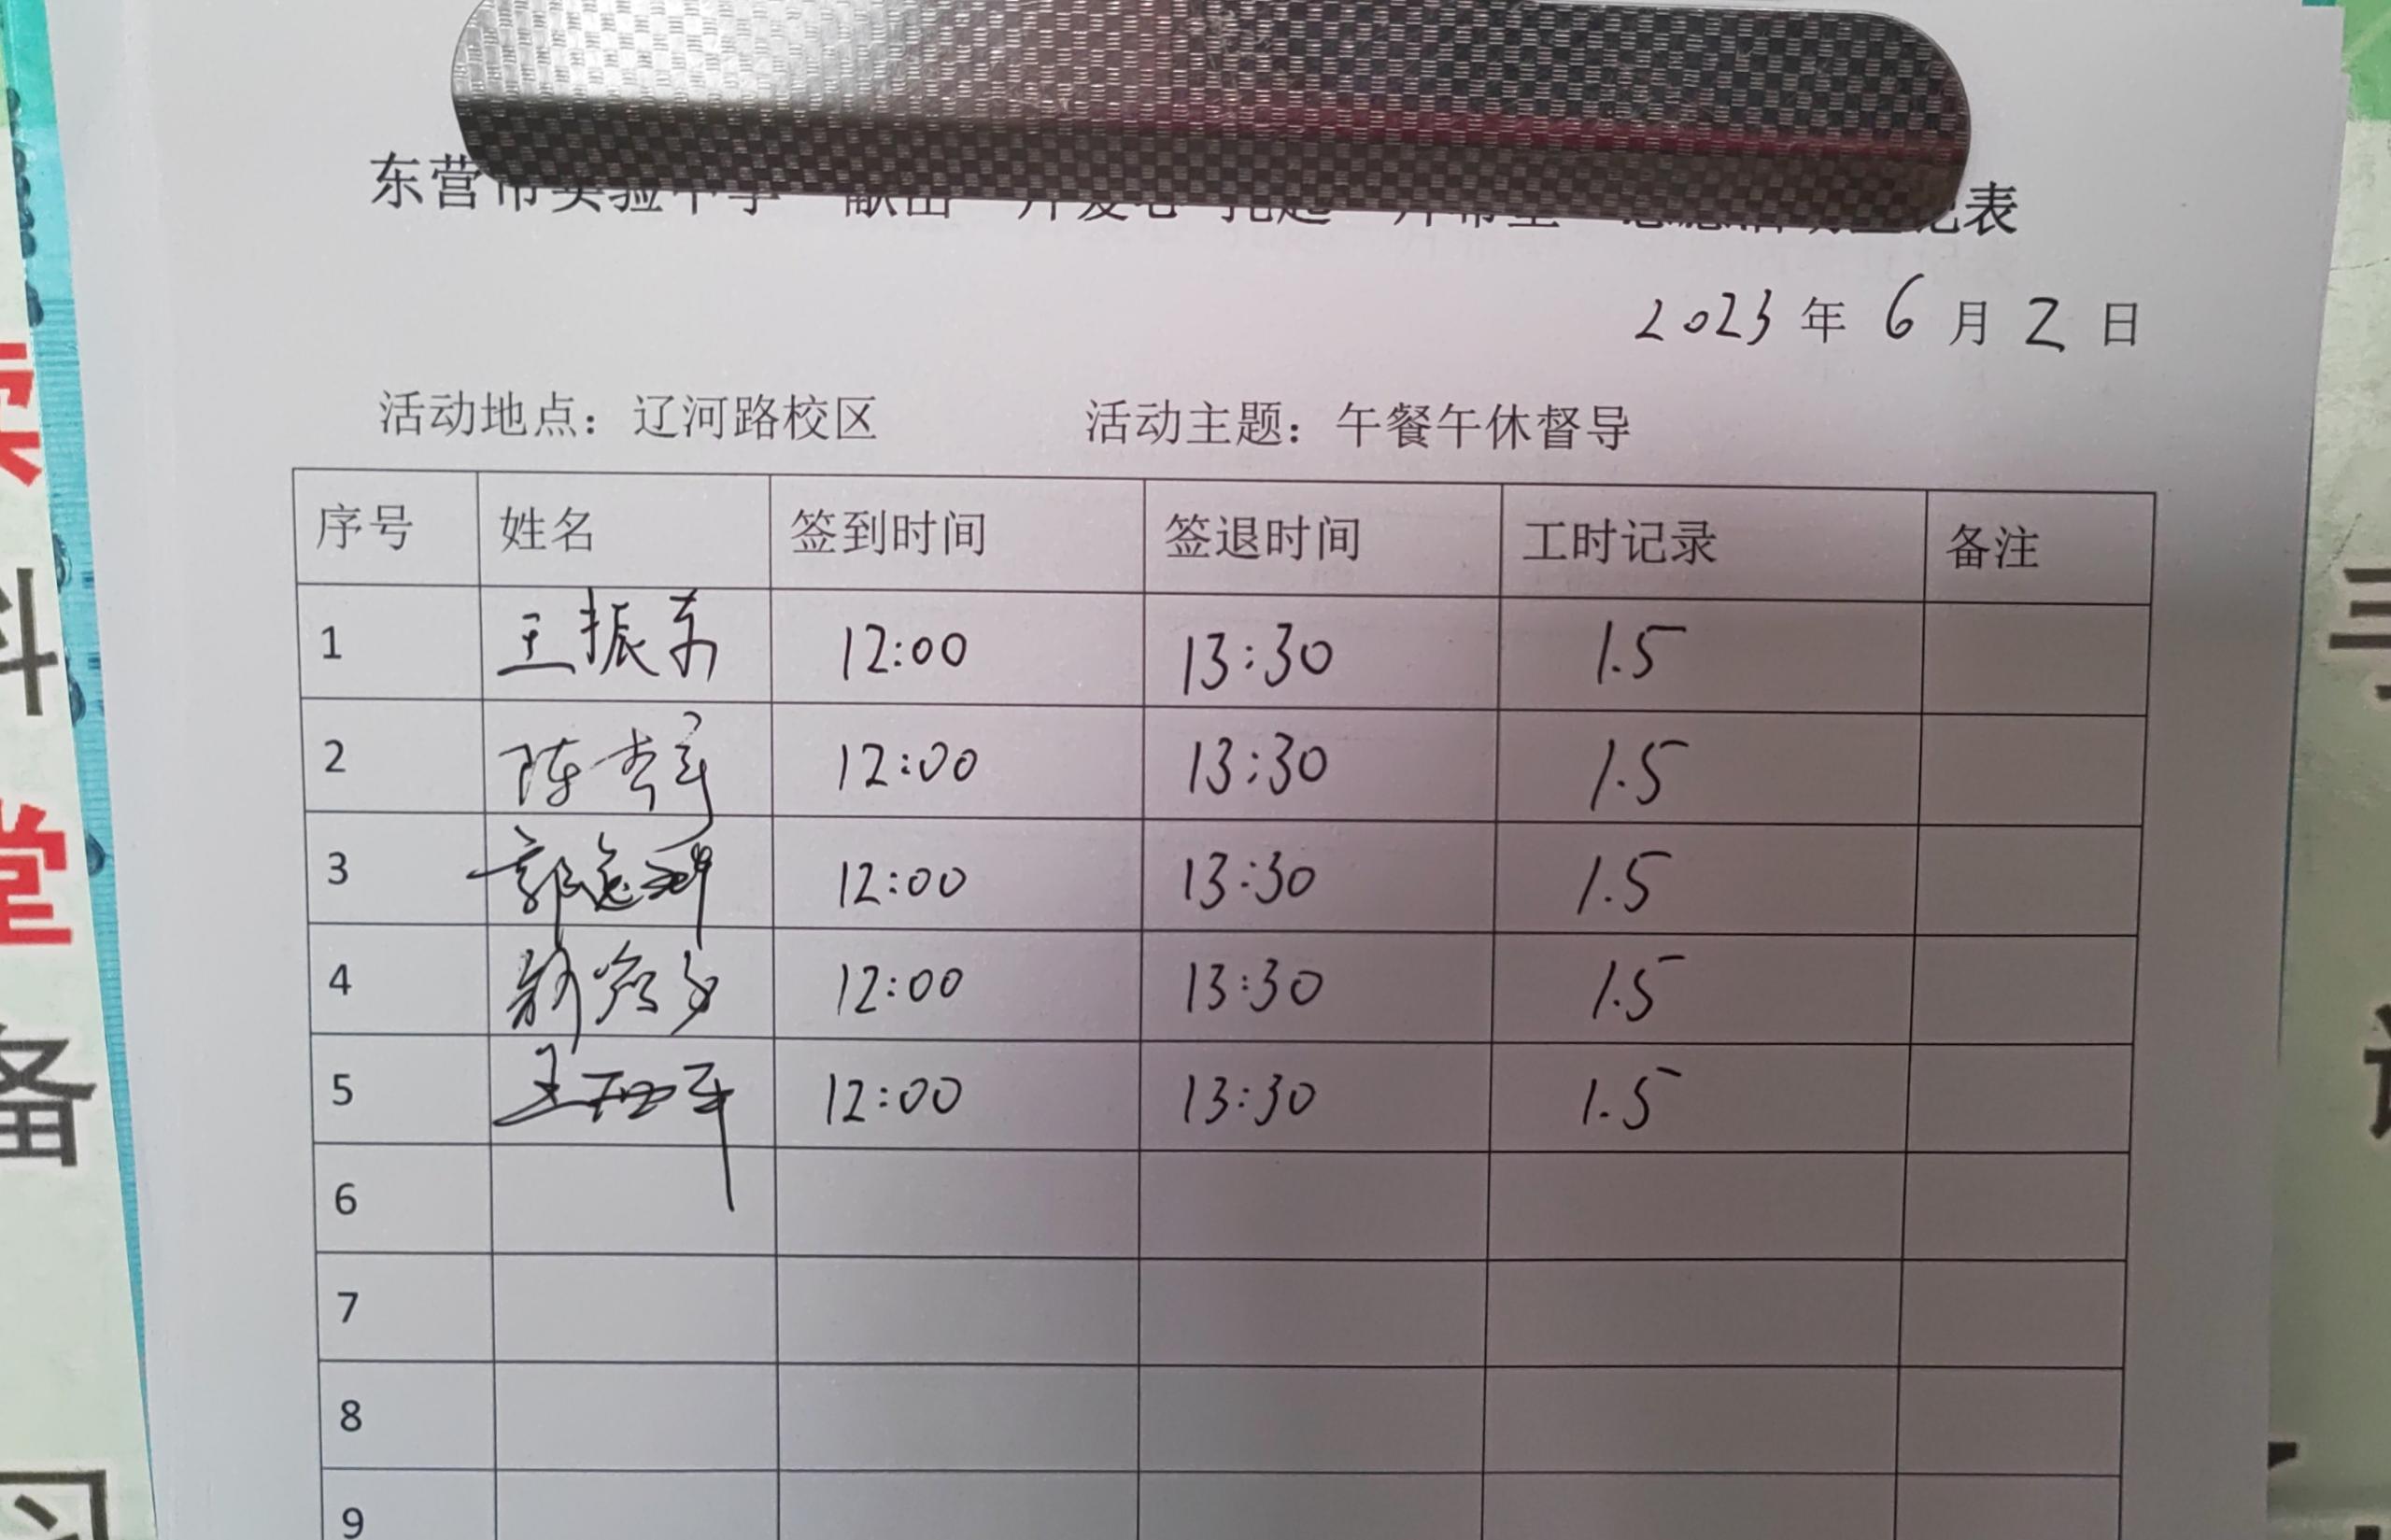 东营市实验中学 献出一片爱心 托起一片希望 志愿活动登记表
2023 年 6 月 2 日
活动地点：辽河路校区 活动主题：午餐午休督导
序号 姓名 签到时间 签退时间 工时记录 备注
1 王振东 12:00 13:30 1.5
2 陈 12:00 13:30 1.5
3 郭 12:00 13:30 1.5
4 12:00 13:30 1.5
5 王 12:00 13:30 1.5
6
7
8
9